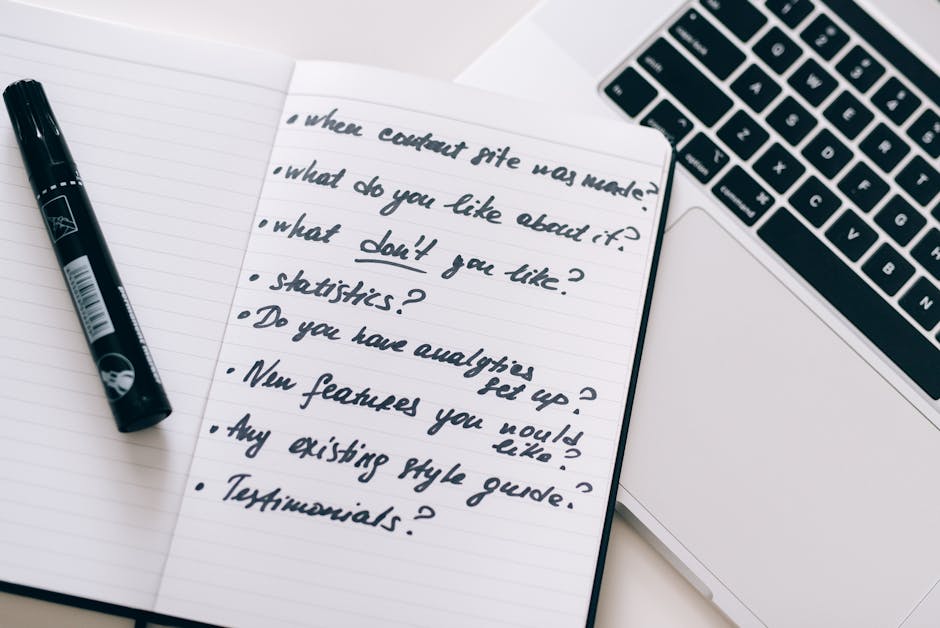 • when content site was made?
• what do you like about it?
• what don't you like?
• statistics?
• Do you have analytics
set up?
• New features you would
like?
• Any existing style guide?
• Testimonials?
2 3 4 5
Q W E R T
caps lock A S D F G H
shift Z X C V B N
fn option command